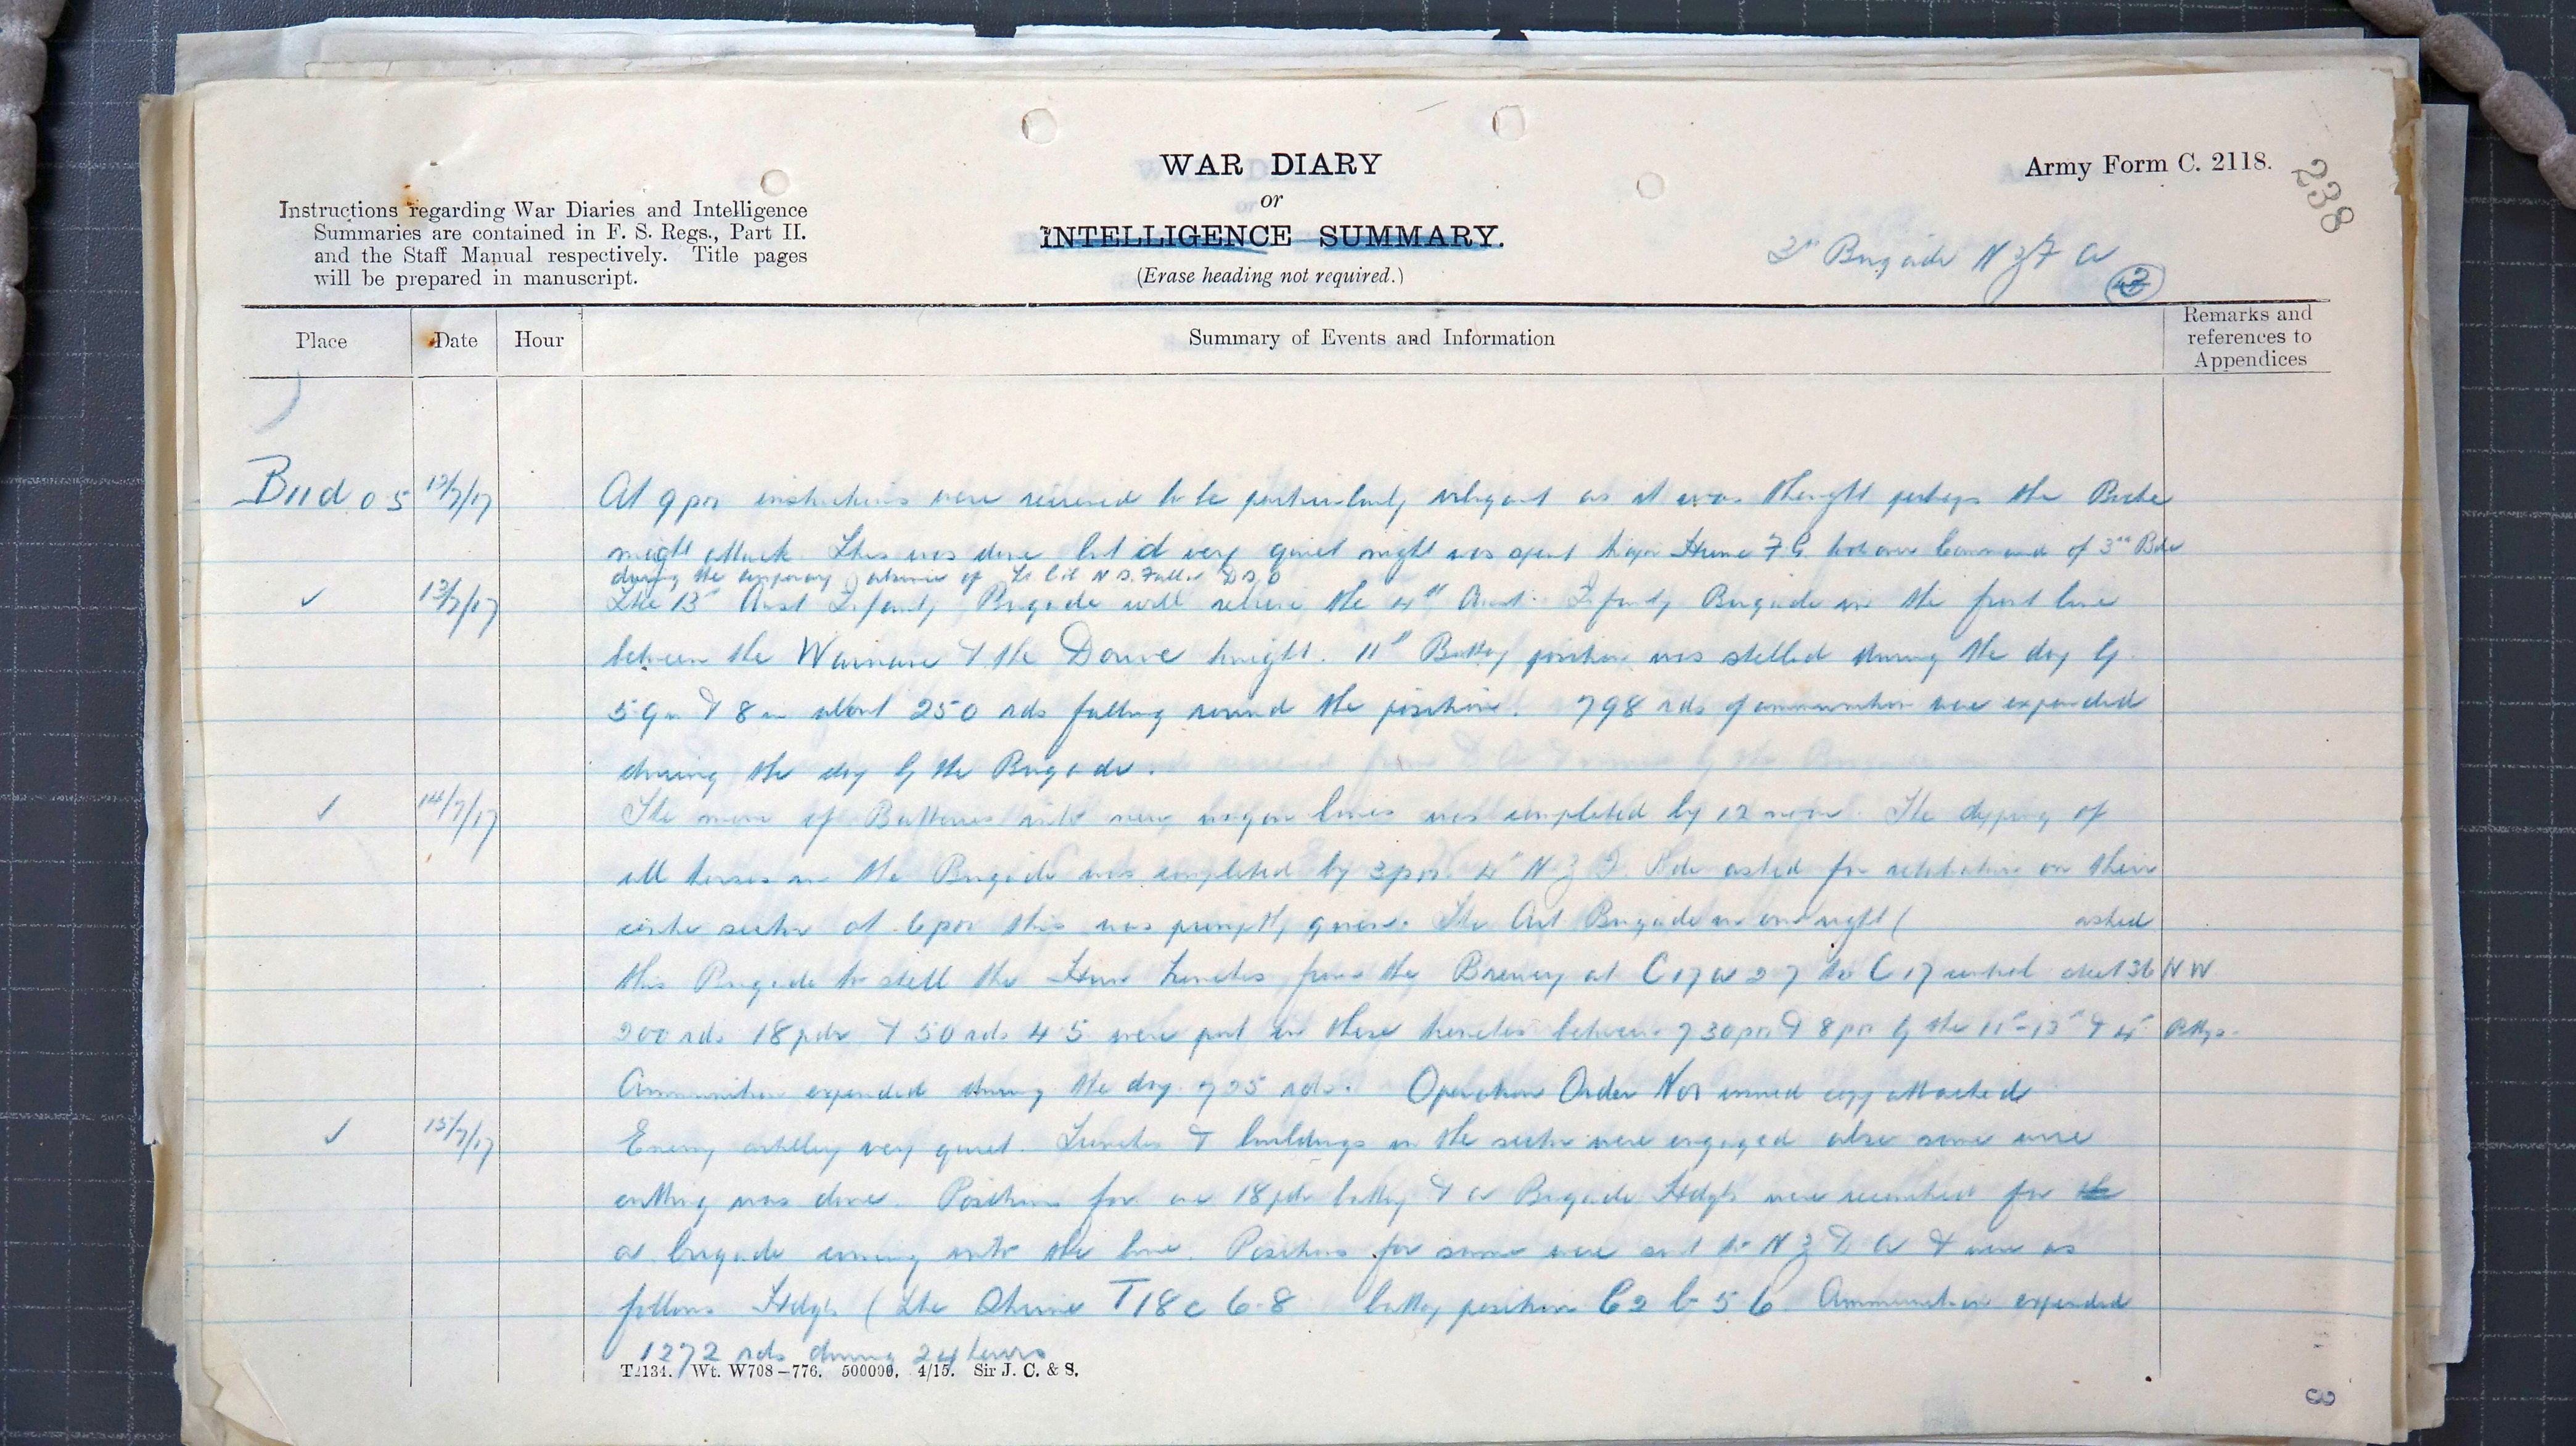 WAR DIARY
or
INTELLIGENCE SUMMARY.
(Erase heading not required.)
Army Form C. 2118.
238
Instructions regarding War Diaries and Intelligence
Summaries are contained in F. S. Regs., Part II.
and the Staff Manual respectively. Title pages
will be prepared in manuscript.
3rd Brigade N Z F A
Place
Date
Hour
Summary of Events and Information
Remarks and
references to
Appendices
12/7/17
At 9 pm instructions were received to be particularly vigilant as it was thought perhaps the Boche
might attack. This was done but a very quiet night was spent Major Hume F.G. took over Command of 3rd Bde
during the temporary absence of Lt Col N S. Falla D S O
13/7/17
The 13th Aust Infanty Brigade will relieve the 4th Aust. Infanty Brigade in the front line
between the Warnave & the Douve tonight. 11th Battery position was shelled during the day by
5.9in & 8in about 250 rds falling round the position. 798 rds of ammunition were expended
during the day by the Brigade.
14/7/17
The move of Batteries into new wagon lines was completed by 12 noon. The dipping of
all horses in the Brigade was completed by 3pm. 4th N Z I. Bde asked for retaliation on their
centre sector at 6pm this was promptly given. The Art Brigade on our right ( asked
this Brigade to shell the Hun trenches from the Brewery at C 17 a 2 7 to C 17 central sheet 36 N W
200 rds 18 pdr & 50 rds 4 5 were put in these trenches between 7 30pm & 8pm by the 11th - 13th & 4th Bttys.
Ammunition expended during the day 725 rds. Operation Order No1 issued copy attached
15/7/17
Enemy artillery very quiet. Trenches & buildings in the sector were engaged also some wire
cutting was done. Positions for one 18 pdr battery & a Brigade Hdqts were reconnoitred for the
a brigade coming into the line. Positions for same were sent to N Z D. A & were as
follows Hdqts ( the Shrine T 18 c 6.8 battery position C2 b 5 6. Ammunition expended
1272 rds during 24 hours
Wt. W708–776. 500000. 4/15. Sir J. C. & S.